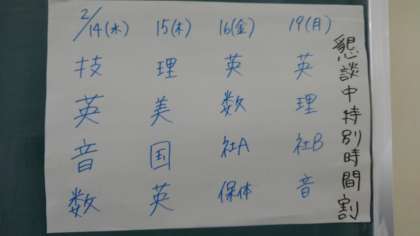 懇談中特別時間割
2/14(水) 15(木) 16(金) 19(月)
技 理 英 英
英 美 数 理
音 国 社A 社B
数 英 保体 音